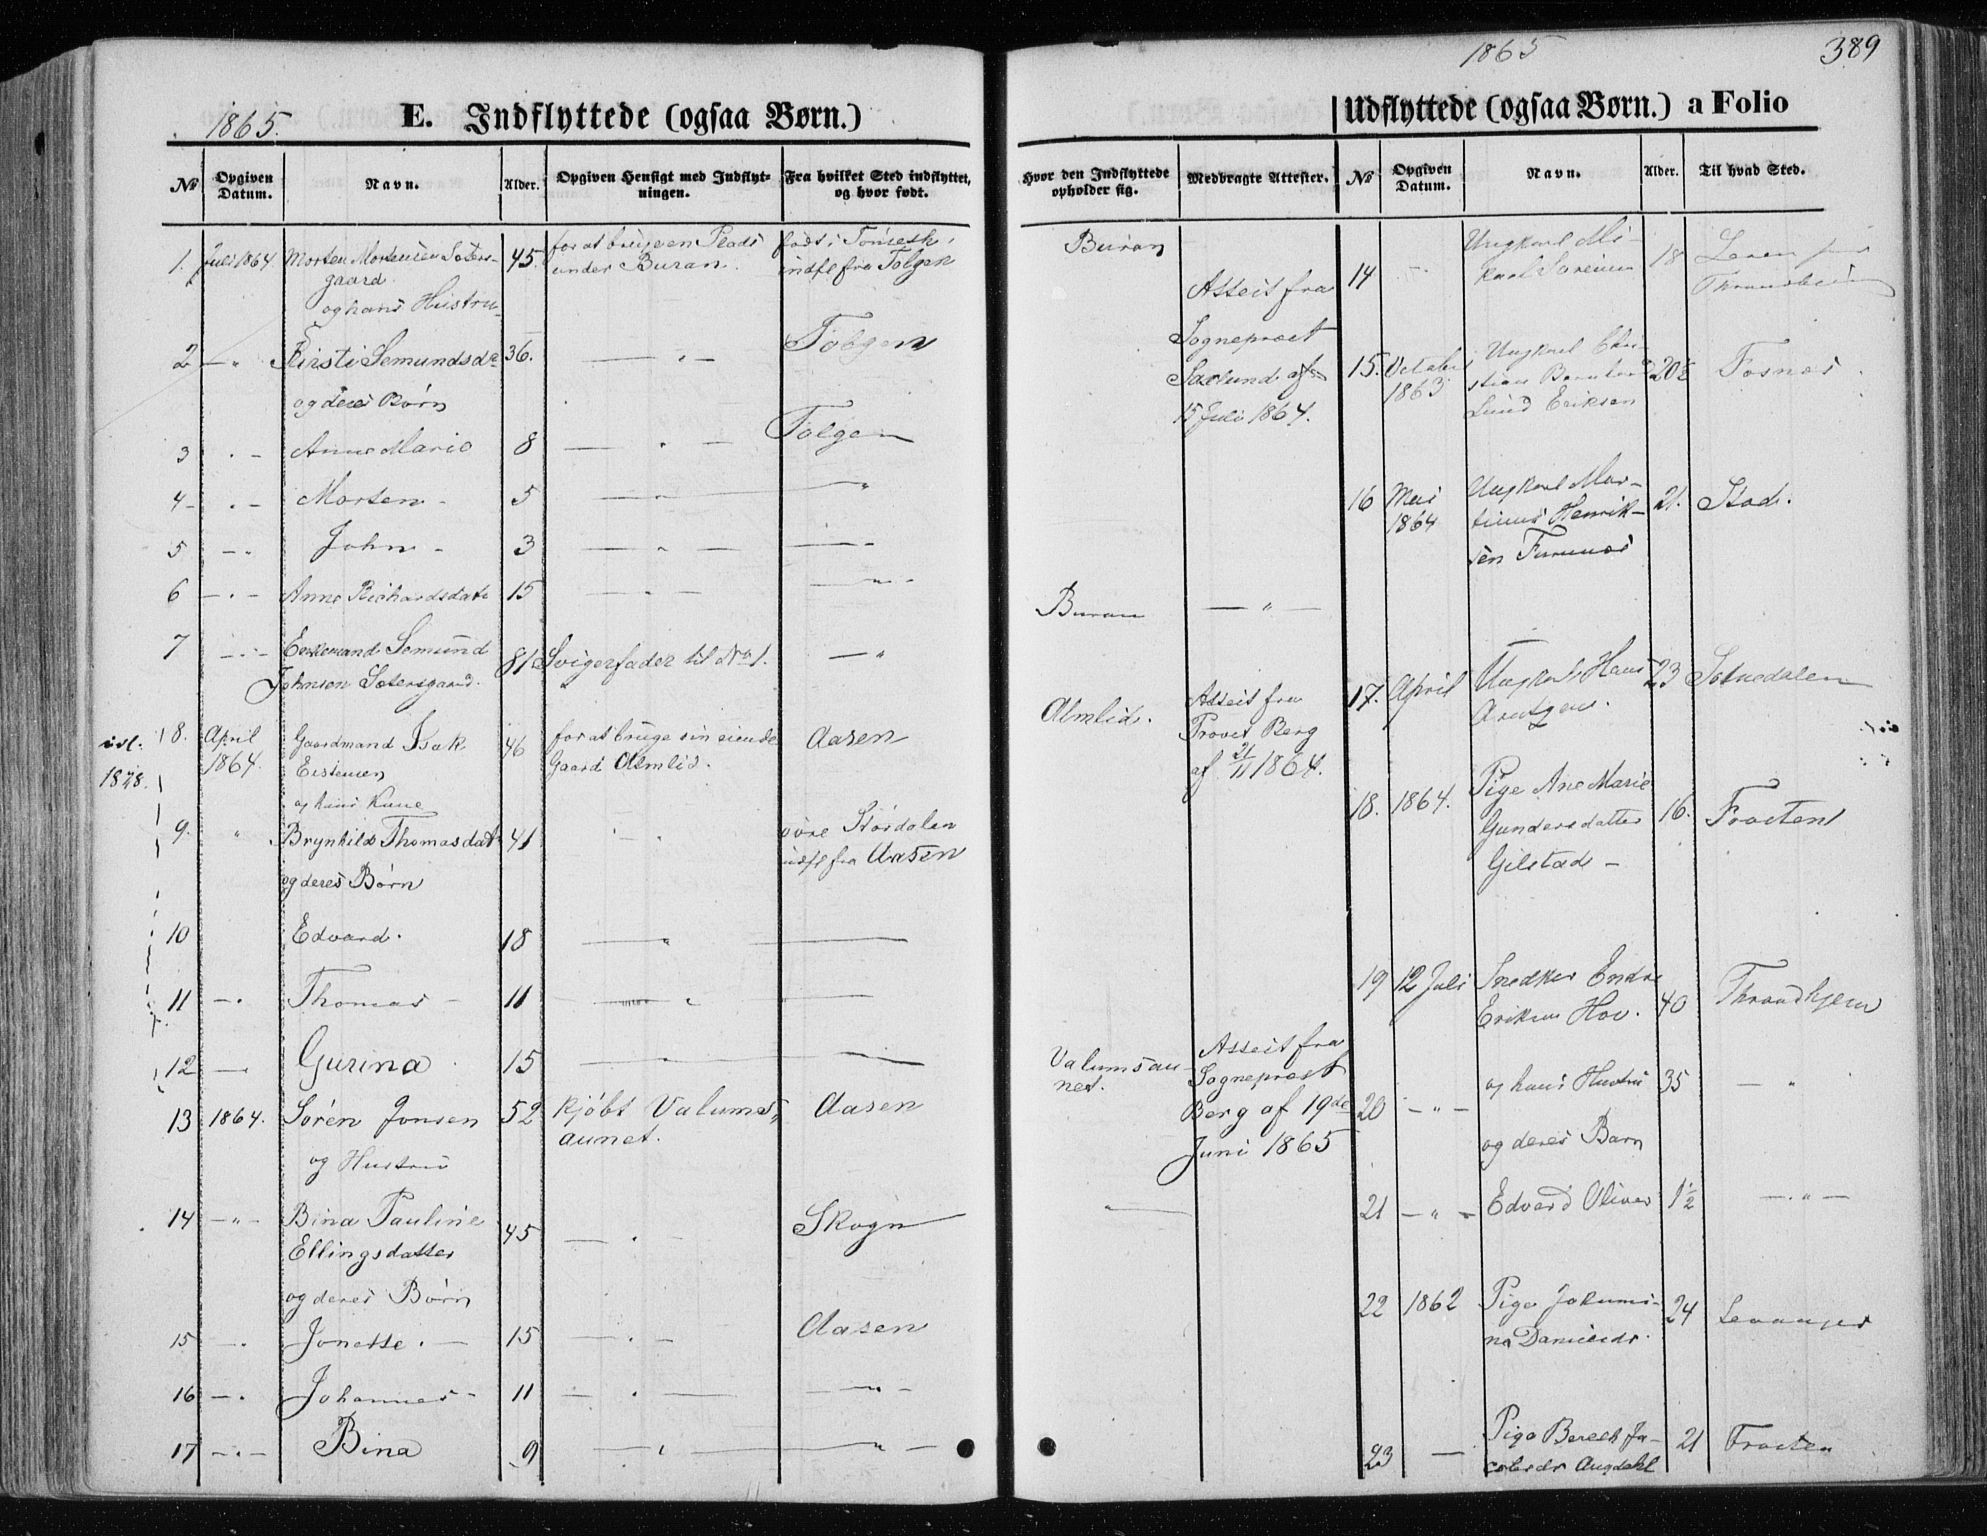 1865
389
1865.
E. Indflyttede (ogsaa Børn.)
Udflyttede (ogsaa Børn.) a Folio
No Opgiven Datum. Navn. Alder. Opgiven Hensigt med Indflytningen. Fra hvilket Sted indflyttet, og hvor født.
Hvor den Indflyttede opholder sig. Medbragte Attester. No Opgiven Datum. Navn. Alder. Til hvad Sted.
1. Juli 1864 Morten Mortensen Soters- 45. for at bruge en Plads født i Tønseth,
gaard under Buran. indfl fra Tolgen
og hans Hustru
2 — " Kirsti Semundsdr 36. — " — Tolgen
og deres Børn
3 " — Anne Marie 8 — " — Tolgen
4 - " - Morten - 5 — " — "
5 - " John - 3 — " — — " —
6 - " - Anne Richardsdatr 15 — " — — " -
7 - " - Enkemand Semund 81 Svigerfader til No 1. — "
Johnsen Sotersgaard.
udfl. 1878.
8. April 1864. Gaardmand Isak 46 for at bruge sin eiende Aasen
Eistensen Gaard Almlid.
og hans Kone
9. " Brynhild Thomasdatr 41 " øvre Størdalen
indfl fra Aasen
og deres Børn
10 Edvard. 18 — "
11 — " Thomas - 11 — "
12 — Gurina 15
13 1864. Søren Jonsen 52 kjøbt Valums- Aasen
aunet.
og Hustru
14 — " — Bina Pauline 45 — " — Skogn
Ellingsdatter
og deres Børn
15 — " Jonette. — 15 — " — Aasen
16 — " Johannes - 11 — " — — " —
17 — " — Bina 9 — " — — " —
Buran
Attest fra
Sognepræst
af
15 Juli 1864.
Buran — " —
Almlid. Attest fra
Provst Berg
af 21/11 1864.
Valumsau-
net.
Attest fra
Sognepræst
Berg af 19de
Juni 1865
14 — Ungkarl Mi- 18
kael Sorensen Throndheim
15. October 1863 Ungkarl Chri- 20½ Fosnæs.
stian Bernhard
Lund Eriksen
16 Mai 1864 Ungkarl Mar- 21. Stod.
tinus Henrik-
sen Furunes
17. April Ungkarl Hans 23 Soknedalen
Arntzen.
18. 1864. Pige Ane Marie 16. Frosten
Gundersdatter
Gilstad —
19 12 Juli Snedker Endre 40 Throndhjem
Eriksen Hov.
20 — " — og hans Hustru 35 — "
og deres Barn
21 — " — Edvard Oliver 1½ — " —
22 1862 Pige Jokumi- 24 Levanger
na Danielsdr.
23 — Pige Bereth Ja- 21 Frosten
cobsdr Augdahl